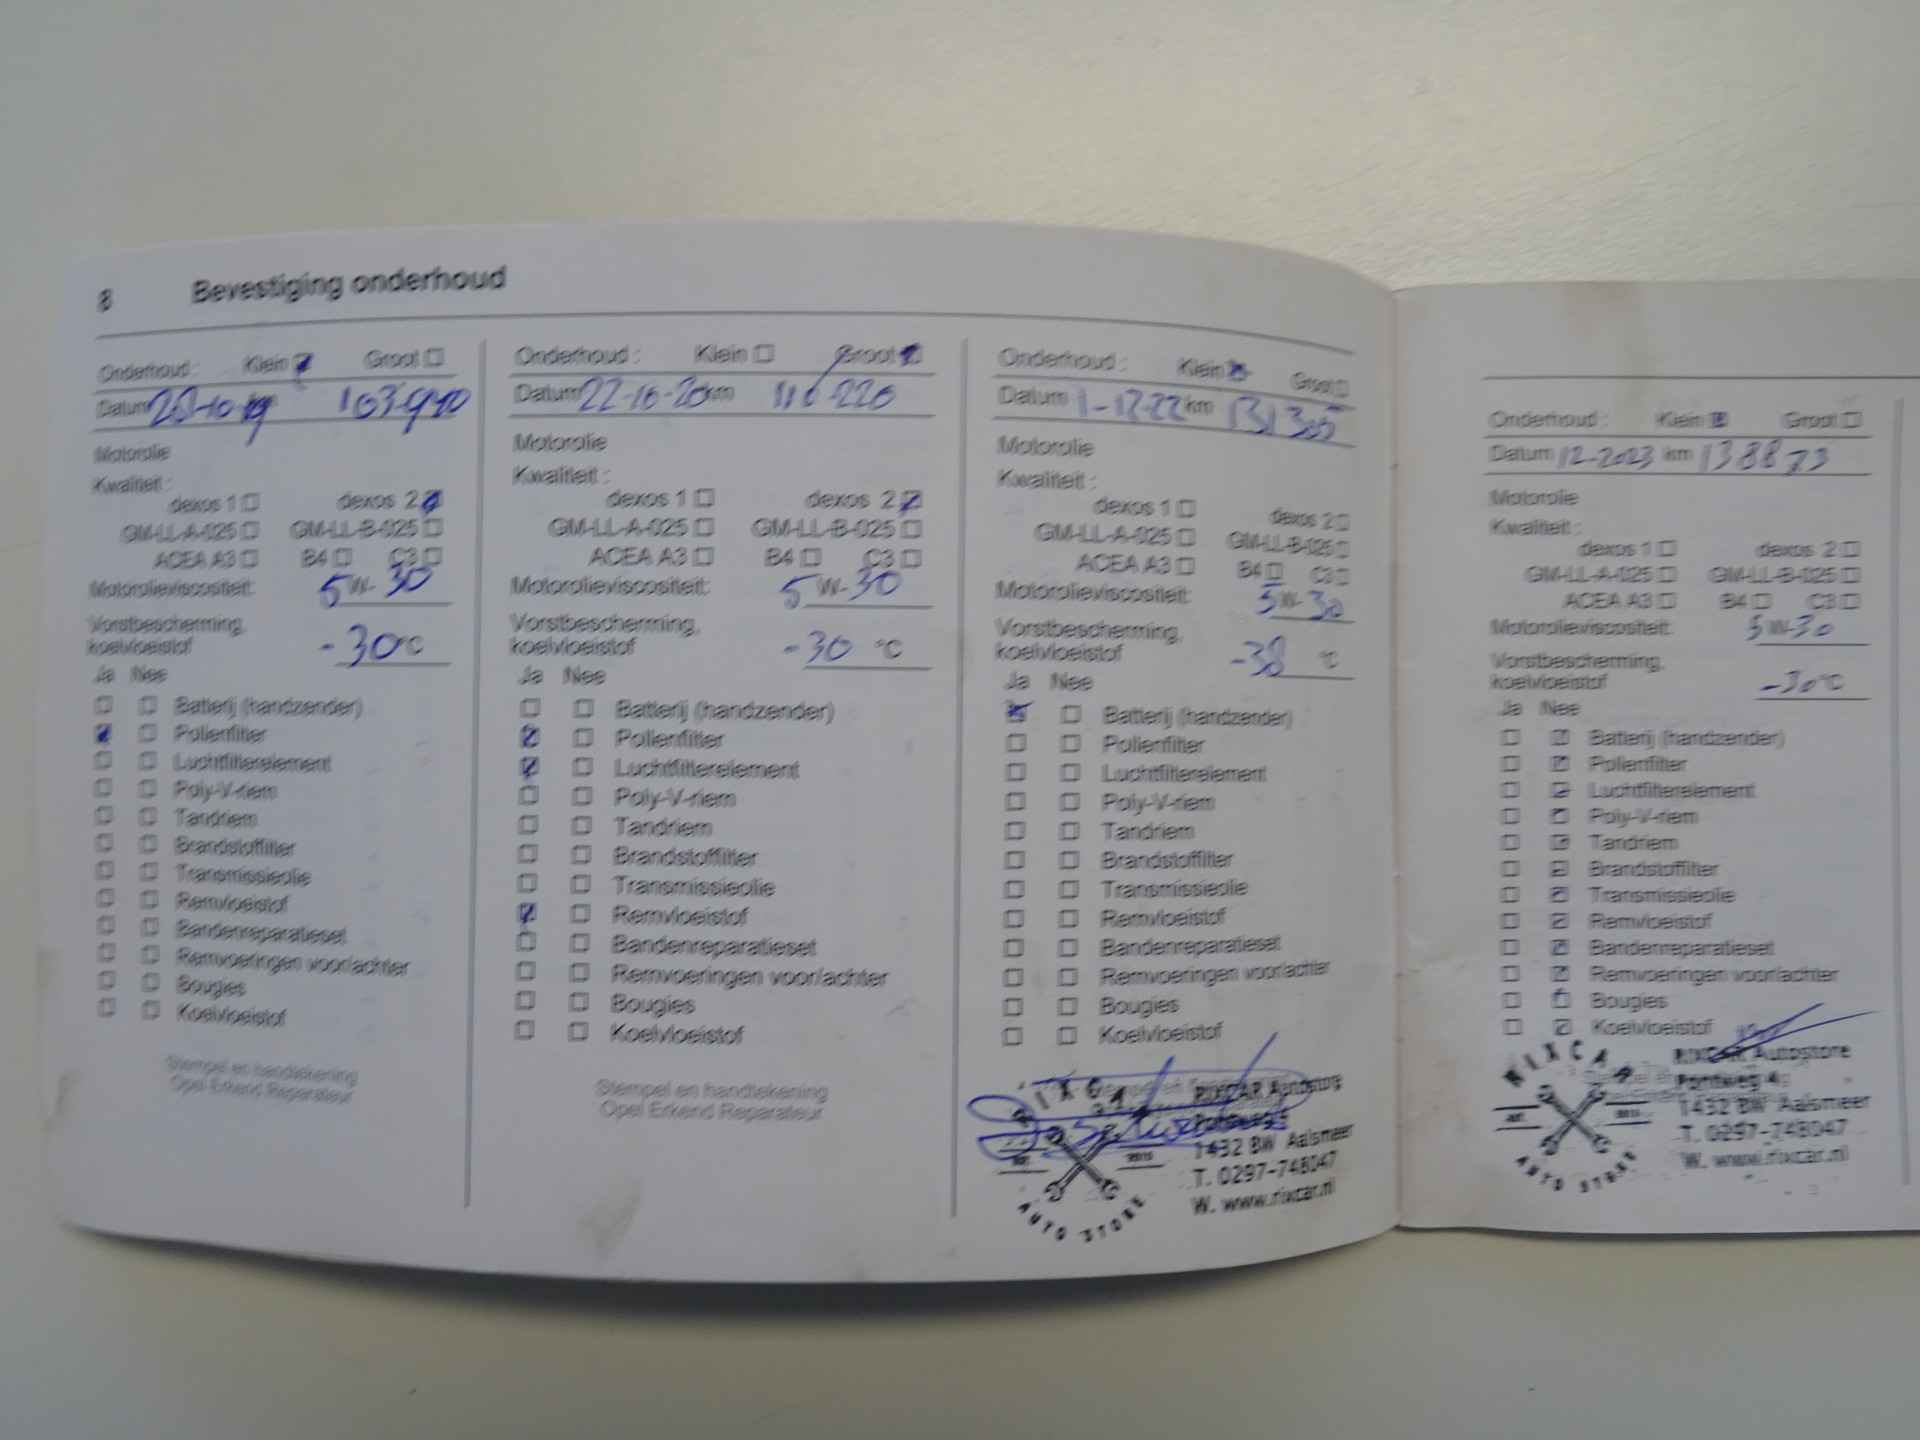 8 Bevestiging onderhoud
Onderhoud : Klein Groot
Datum 28-10-19 km 103.940
Motorolie
Kwaliteit :
dexos 1 dexos 2
GM-LL-A-025 GM-LL-B-025
ACEA A3 B4 C3
Motorolieviscositeit: 5 W- 30
Vorstbescherming,
koelvloeistof -30 °C
Ja Nee
Batterij (handzender)
Pollenfilter
Luchtfilterelement
Poly-V-riem
Tandriem
Brandstoffilter
Transmissieolie
Remvloeistof
Bandenreparatieset
Remvoeringen voor/achter
Bougies
Koelvloeistof
Stempel en handtekening
Opel Erkend Reparateur
Onderhoud : Klein Groot
Datum 22-10-20 km 116.220
Motorolie
Kwaliteit :
dexos 1 dexos 2
GM-LL-A-025 GM-LL-B-025
ACEA A3 B4 C3
Motorolieviscositeit: 5 W- 30
Vorstbescherming,
koelvloeistof -30 °C
Ja Nee
Batterij (handzender)
Pollenfilter
Luchtfilterelement
Poly-V-riem
Tandriem
Brandstoffilter
Transmissieolie
Remvloeistof
Bandenreparatieset
Remvoeringen voor/achter
Bougies
Koelvloeistof
Stempel en handtekening
Opel Erkend Reparateur
Onderhoud : Klein Groot
Datum 1-12-22 km 131305
Motorolie
Kwaliteit :
dexos 1 dexos 2
GM-LL-A-025 GM-LL-B-025
ACEA A3 B4 C3
Motorolieviscositeit: 5 W- 30
Vorstbescherming,
koelvloeistof -38 °C
Ja Nee
Batterij (handzender)
Pollenfilter
Luchtfilterelement
Poly-V-riem
Tandriem
Brandstoffilter
Transmissieolie
Remvloeistof
Bandenreparatieset
Remvoeringen voor/achter
Bougies
Koelvloeistof
RIXCAR
AUTO STORE
RIXCAR Autostore
1432 BW Aalsmeer
T. 0297-748047
W. www.rixcar.nl
Onderhoud : Klein Groot
Datum 12-2023 km 138873
Motorolie
Kwaliteit :
dexos 1 dexos 2
GM-LL-A-025 GM-LL-B-025
ACEA A3 B4 C3
Motorolieviscositeit: 5 W- 30
Vorstbescherming,
koelvloeistof -30 °C
Ja Nee
Batterij (handzender)
Pollenfilter
Luchtfilterelement
Poly-V-riem
Tandriem
Brandstoffilter
Transmissieolie
Remvloeistof
Bandenreparatieset
Remvoeringen voor/achter
Bougies
Koelvloeistof
RIXCAR
AUTO STORE
RIXCAR Autostore
Pontweg 4
1432 BW Aalsmeer
T. 0297-748047
W. www.rixcar.nl